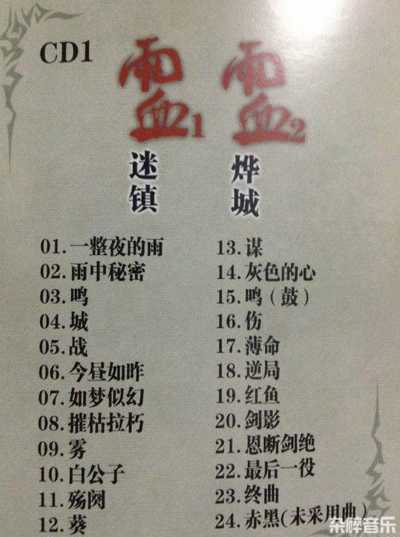 CD1
䨟1
䨟2
迷镇
烨城
01.一整夜的雨
02.雨中秘密
03.鸣
04.城
05.战
06.今昼如昨
07.如梦似幻
08.摧枯拉朽
09.雾
10.白公子
11.殇阕
12.葵
13.谋
14.灰色的心
15.鸣(鼓)
16.伤
17.薄命
18.逆局
19.红鱼
20.剑影
21.恩断剑绝
22.最后一役
23.终曲
24.赤黑(未采用曲)
杂碎音乐